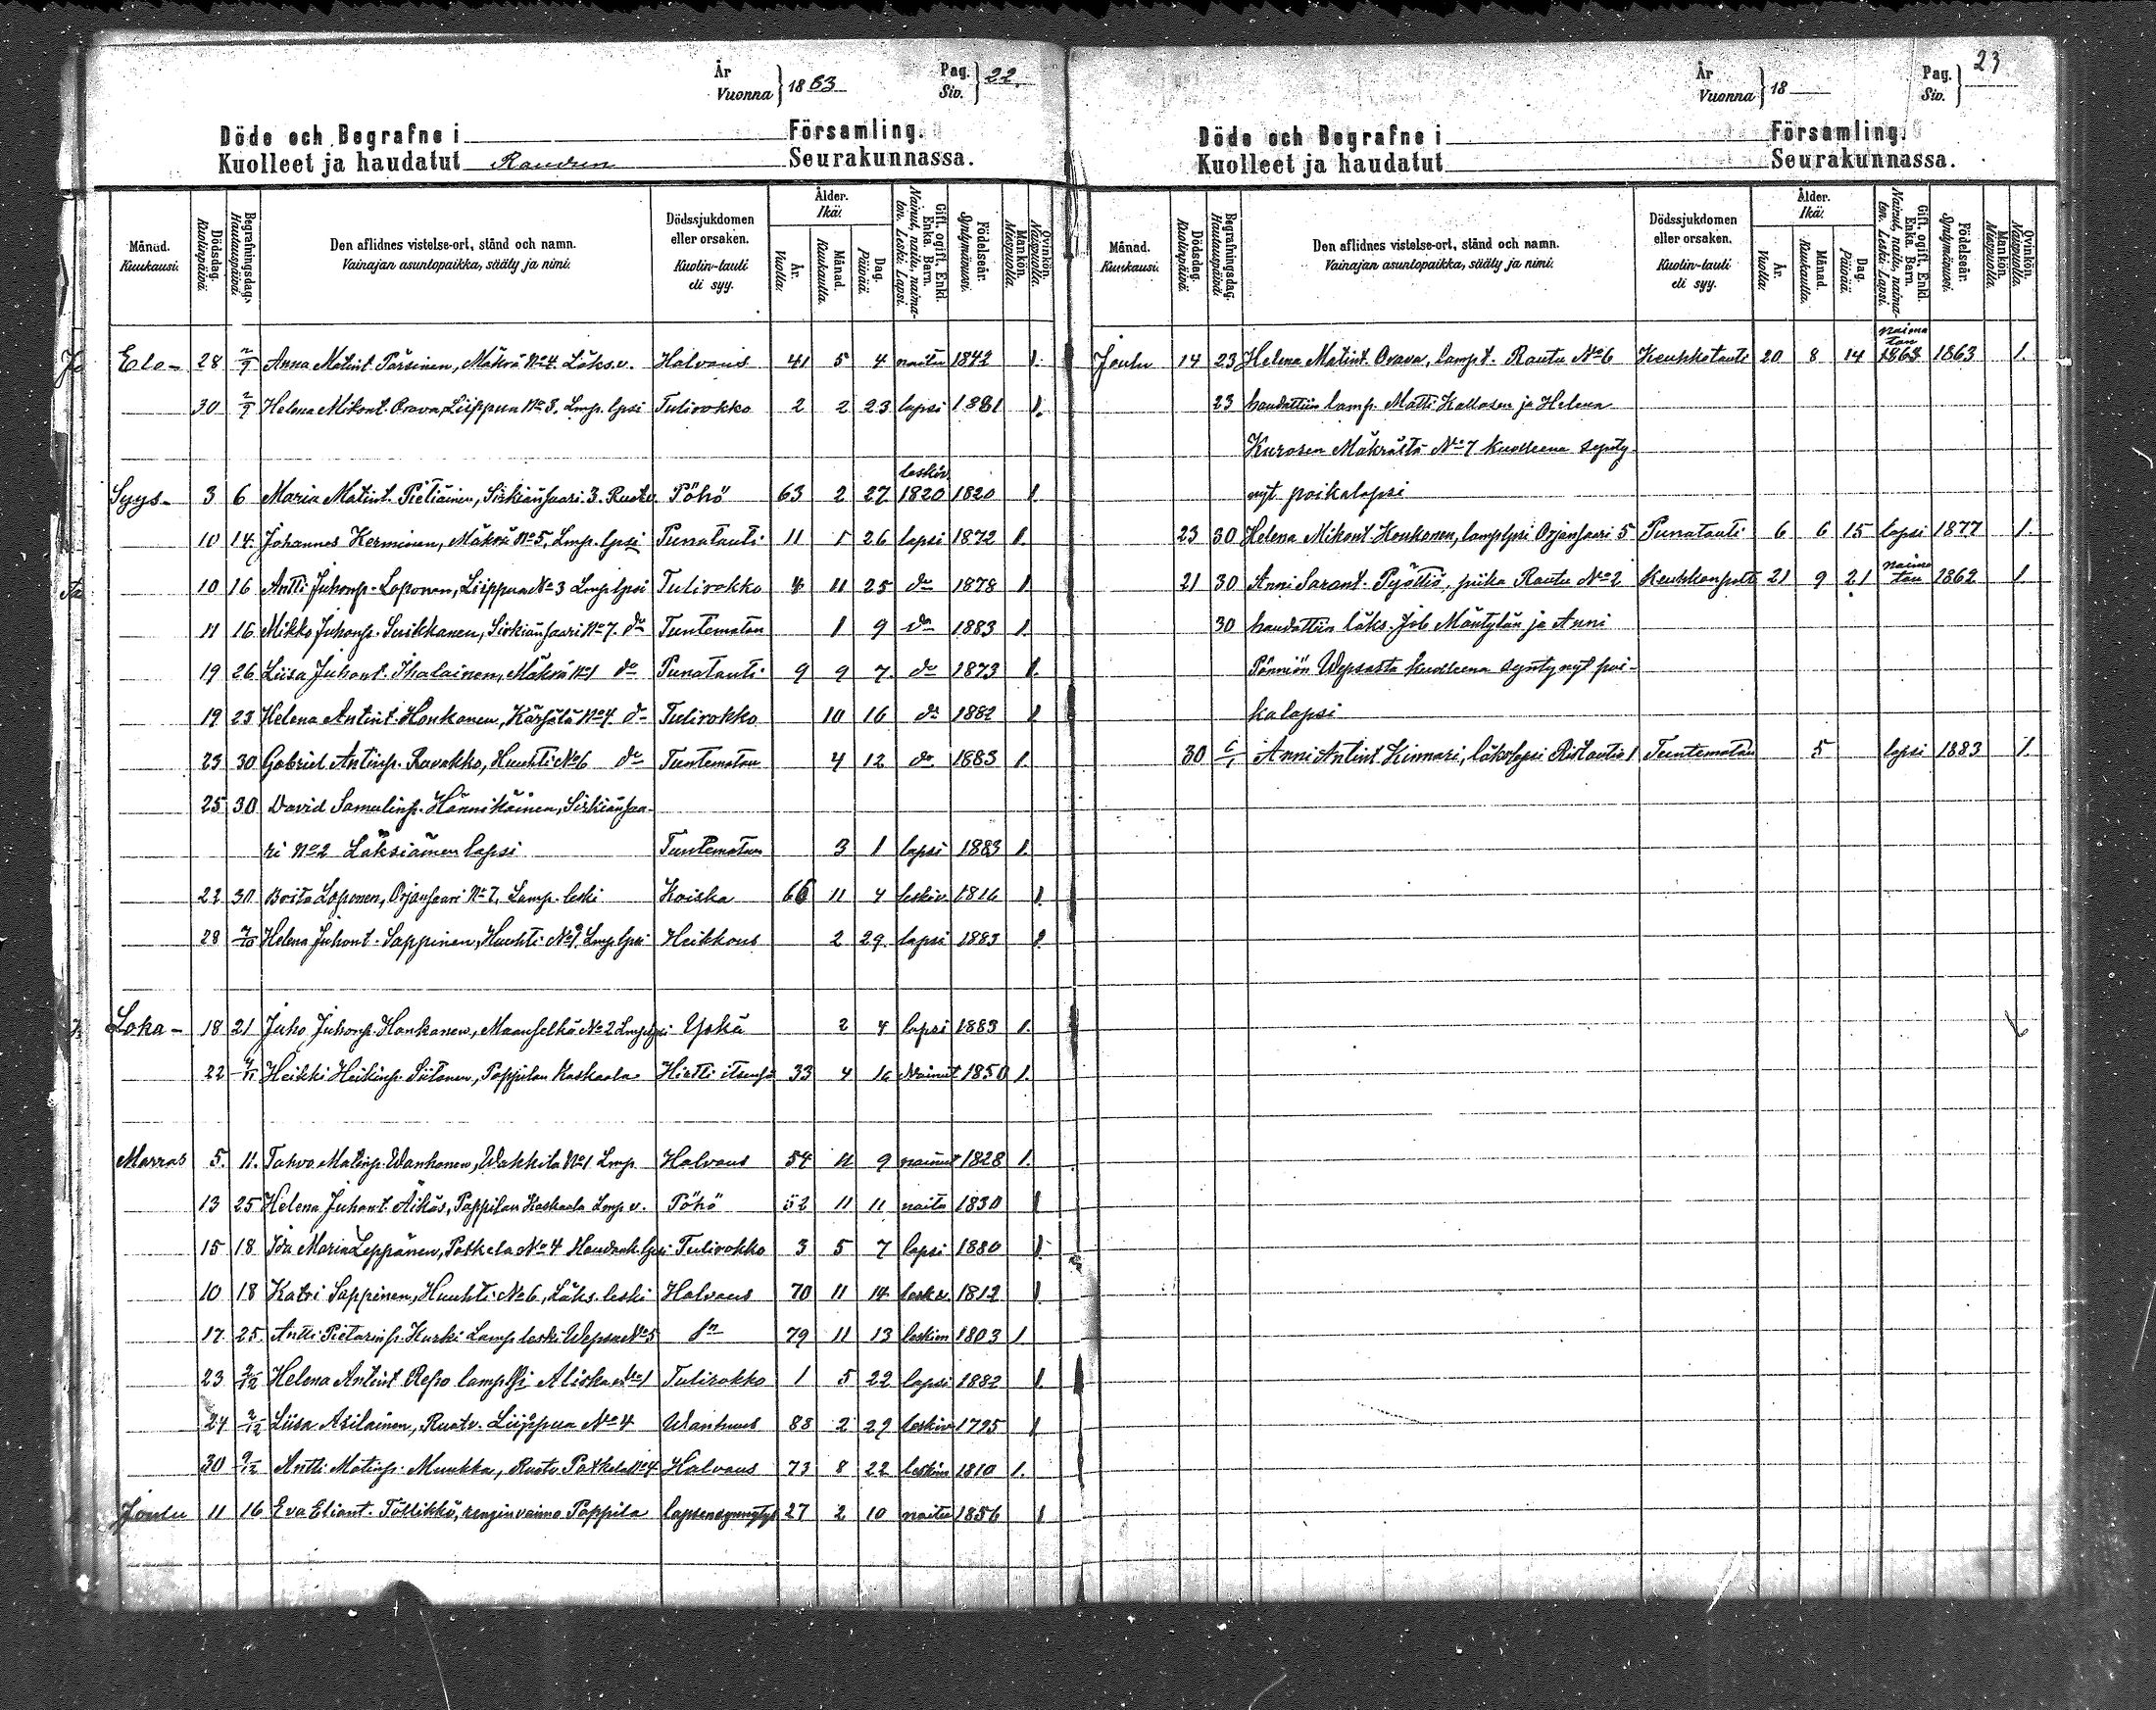 År
Vuonna } 1883
Pag.
Siv. } 22.
Döde och Begrafne i Församling.
Kuolleet ja haudatut Raudun Seurakunnassa.
Månad. Kuukausi. Dödsdag. Kuolinpäivä. Begrafningsdag. Hautauspäivä. Den aflidnes vistelse-ort, stånd och namn. Vainajan asuntopaikka, sääty ja nimi. Dödssjukdomen eller orsaken. Kuolin-tauti eli syy. Ålder. Ikä. År. Vuotta. Månad. Kuukautta. Dag. Päivää. Gift, ogift, Enkl. Enka. Barn. Nainut, naitu, naimaton. Leski. Lapsi. Födelseår. Syntymävuosi. Mankön. Miespuolia. Qvinkön. Naispuolia.
Elo- 28 2/9 Anna Matint. Pärsinen, Mäkrä No 4. Läks. v. Halvaus 41 5 4 naitu 1842 1.
30 2/9 Helena Mikont. Orava, Liippua No 8. Lmp. lpsi Tulirokko 2 2 23 lapsi 1881 1.
leskiv.
Syys- 3 6 Maria Matint. Pietiäinen, Sirkiänsaari. 3. Ruotv. Pöhö 63 2 27 1820 1820 1.
10 14. Johannes Kerminen, Mäkrä No 5, Lmp. lpsi Punatauti 11 1 26 lapsi 1872 1.
10 16 Antti Juhonp. Loponen, Liippua No 3 Lmp lpsi Tulirokko 4 11 25 do 1878 1.
11 16 Mikko Juhonp. Suikkanen, Sirkiänsaari No 7. do Tuntematon 1 9 do 1883 1.
19 26 Liisa Juhont. Ihalainen, Mäkrä No 1 do Punatauti 9 9 7. do 1873 1.
19 23 Helena Antint. Honkanen, Kärsälä No 4 do Tulirokko 10 16 do 1882 1
23 30 Gabriel Antinp. Ravakko, Huuhti No 6 do Tuntematon 4 12 do 1883 1.
25 30 David Samulinp. Hännikäinen, Sirkiänsaa-
ri No 2 Läksiäinen lapsi Tuntematon 3 1 lapsi 1883 1.
22 30 Loponen, Orjansaari No 7, Lamp. leski Koiska 66 11 4 leskiv. 1816 1.
28 7/10 Helena Juhont. Sappinen, Huuhti No 9. Lmp lpsi Heikkous 2 29. lapsi 1883 1.
Loka- 18 21 Juho Juhonp. Honkanen, Maanselkä No 2 Lmp lpsi Yskä 2 4 lapsi 1883 1.
22 4/11 Heikki Heikinp. Siitonen, Pappilan Kaskaala Hirtti itsensä 33 4 16 Nainut 1850 1.
Marras 5. 11. Tahvo Matinp. Wanhanen, Wakkila No 1 Lmp Halvaus 54 11 9 nainut 1828 1.
13 25 Helena Juhont. Äikäs, Pappilan Kaskaala Lmp v. Pöhö 52 11 11 naitu 1830 1
15 18 Ida Maria Leppänen, Potkela No 4 lpsi Tulirokko 3 5 7 lapsi 1880 1.
10 18 Katri Sappinen, Huuhti No 6, Läks. leski Halvaus 70 11 14. lesk v. 1812 1
17. 25. Antti Pietarinp. Kurki Lamp. leski Wepsa No 5 79 11 13 leskim 1803 1
23 2/12 Helena Antint Repo lamp lpsi Aliska No 1 Tulirokko 1 5 22 lapsi 1882 1.
24 2/12 Liisa Asilainen, Ruotv. Liippua No 4 Wanhuus 88 2 29 leskiv 1795 1
30 9/12 Antti Matinp. Muukka, Ruotv. Potkela No 4 Halvaus 73 8 22 leskim 1810 1.
Joulu 11 16 Eva Eliant. Töllikkö, renginvaimo Pappila lapsensynnytys 27 2 10 naitu 1856 1
År
Vuonna } 18
Pag.
Siv. } 23
Döde och Begrafne i Församling.
Kuolleet ja haudatut Seurakunnassa.
Månad. Kuukausi. Dödsdag. Kuolinpäivä. Begrafningsdag. Hautauspäivä. Den aflidnes vistelse-ort, stånd och namn. Vainajan asuntopaikka, sääty ja nimi. Dödssjukdomen eller orsaken. Kuolin-tauti eli syy. Ålder. Ikä. År. Vuotta. Månad. Kuukautta. Dag. Päivää. Gift, ogift, Enkl. Enka. Barn. Nainut, naitu, naimaton. Leski. Lapsi. Födelseår. Syntymävuosi. Mankön. Miespuolia. Qvinkön. Naispuolia.
naima
ton
Joulu 14 23 Helena Matint. Orava, lamp t. Rautu No 6 Keuhkotauti 20 8 14 1863 1863 1.
23 haudattiin lamp. Matti Kallosen ja Helena
Kurosen Mäkrältä No 7 kuolleena synty-
nyt poikalapsi
23 30 Helena Mikont. Houkonen, lamp lpsi Orjansaari 5 Punatauti 6 6 15 lapsi 1877 1.
21 30 Anni Sarant. Pyöttiö, piika Rautu No 2 Keuhkonpoltt 21 9 21 naima ton 1862 1
30 haudattiin läks. Job Mäntylän ja Anni
Pönniön Wepsasta kuolleena syntynyt poi-
kalapsi
30 6/1 Anni Antint Kinnari, läks lapsi Ristautio 1 Tuntematon 5 lapsi 1883 1.